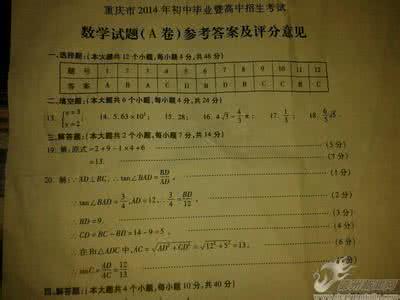 重庆市2014年初中毕业暨高中招生考试
数学试题(A卷)参考答案及评分意见
一、选择题:(本大题共12个小题,每小题4分,共48分)
题号 1 2 3 4 5 6 7 8 9 10 11 12
答案 A
二、填空题:(本大题共6个小题,每小题4分,共24分)
13. { x=3 y=2 14. 5.63×10⁵; 15. 28; 16. 4√3-4/3π; 17. 1/3; 18. 6/5√5.
三、解答题:(本大题共2个小题,每小题7分,共14分)
19. 解:原式=2+9-1×4+6 (5分)
=13. (7分)
20. 解:∵AD⊥BC,∴tan∠BAD=BD/AD, (1分)
∵tan∠BAD=3/4,AD=12,∴3/4=BD/12, (2分)
∴BD=9. (3分)
∴CD=BC-BD=14-9=5, (4分)
∴在Rt△ADC中,AC=√AD²+CD²=√12²+5²=13,
∴sinC=AD/AC=12/13. (7分)
四、解答题:(本大题共4个小题,每小题10分,共40分)